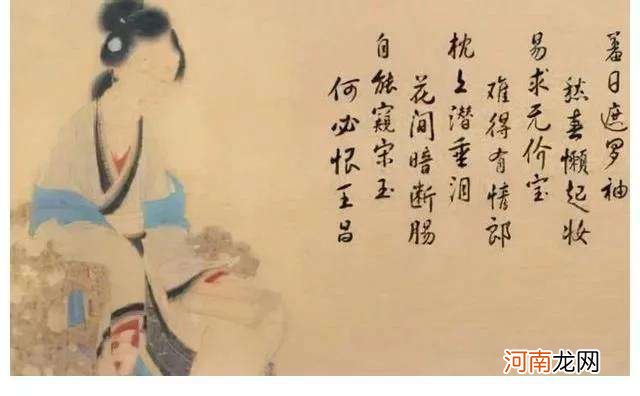 羞日遮罗袖
愁春懒起妆
易求无价宝
难得有情郎
枕上潜垂泪
花间暗断腸
自能窥宋玉
何必恨王昌
河南龙网